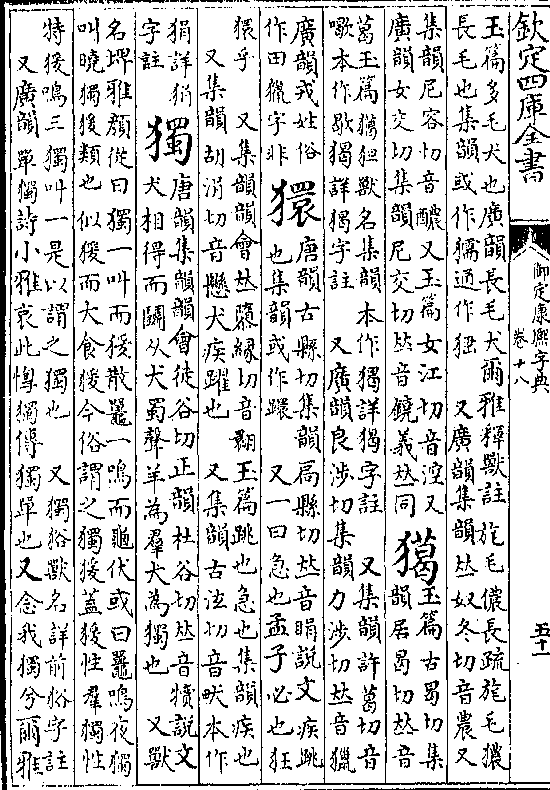 欽定四庫全書
御定康熙字典
卷十八
五十一
玉篇多毛犬也廣韻長毛犬爾雅釋獸註旄毛𤡆長疏旄毛獶
長毛也集韻或作獳通作𤞏 又廣韻集韻𠀤奴冬切音農又
集韻尼容切音醲又玉篇女江切音𣵛又
廣韻女交切集韻尼交切𠀤音鐃義𠀤同
獦
玉篇古曷切集
韻居曷切𠀤音
葛玉篇獦狚獸名集韻本作猲詳猲字註 又集韻許葛切音
喝本作歇猲詳猲字註 又廣韻良涉切集韻力涉切𠀤音獵
廣韻戎姓俗
作田獵字非
獧
唐韻古縣切集韻扃縣切𠀤音睊說文疾跳
也集韻或作䁂 又一曰急也孟子必也狂
獧乎 又集韻韻會𠀤隳緣切音翾玉篇跳也急也集韻疾也
又集韻胡涓切音懸犬疾躍也 又集韻古泫切音畎本作
狷詳狷
字註
獨
唐韻集韻韻會徒谷切正韻杜谷切𠀤音犢說文
犬相得而鬭从犬蜀聲羊為羣犬為獨也 又獸
名埤雅顏從曰獨一叫而猨散鼉一鳴而龜伏或曰鼉鳴夜獨
叫曉獨猨類也似猨而大食猨今俗謂之獨猨蓋猨性羣獨性
特猨鳴三獨叫一是以謂之獨也 又獨𤞞獸名詳前𤞞字註
又廣韻單獨詩小雅哀此惸獨傳獨單也又念我獨兮爾雅